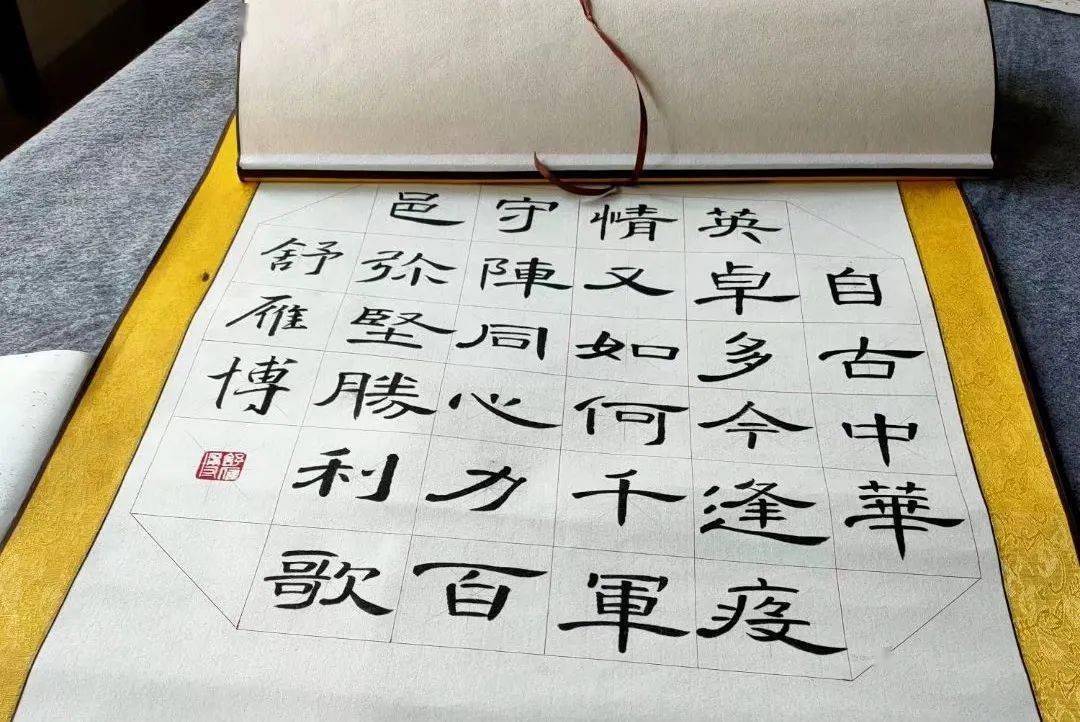 自古中華
英卓多今逢疫
情又如何千軍
守陣同心力百
邑弥堅勝利歌
舒雁博